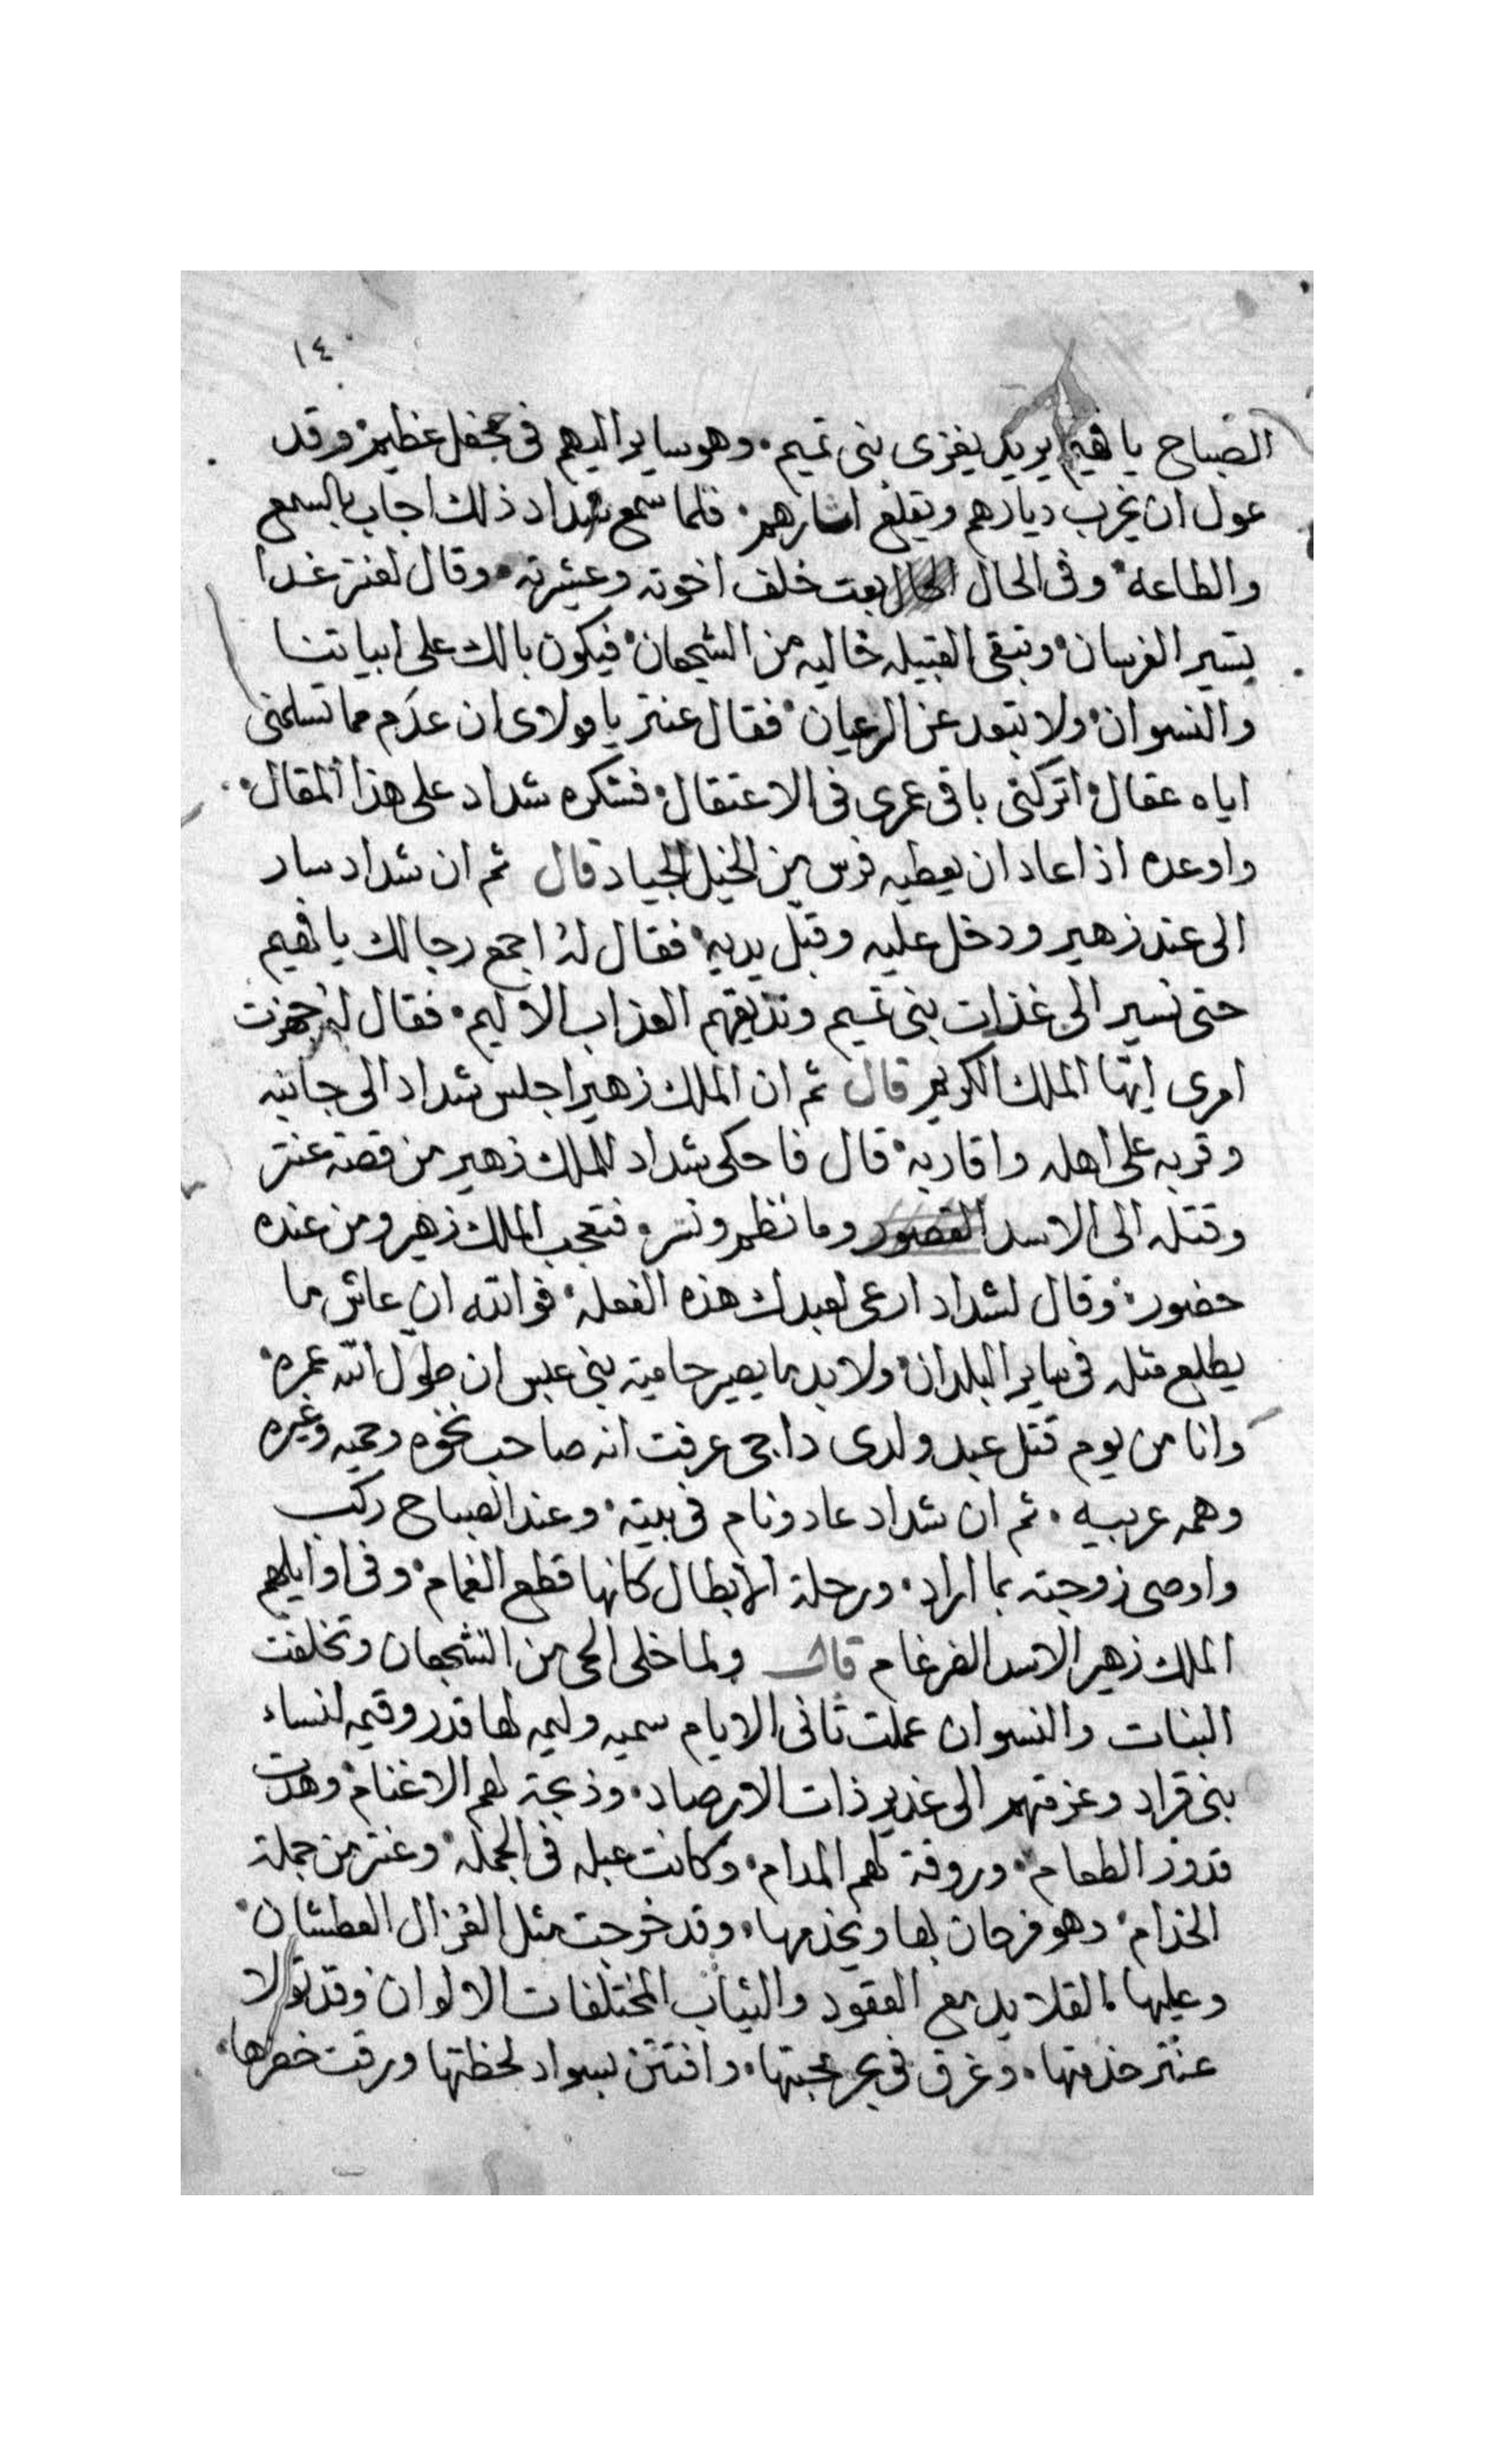 ١٤
الصباح يا فهيم يريد يغزى بنى تميم وهو ساير اليهم فى جحفل عظيم وقد
عول ان يخرب ديارهم ويقلع اثارهم فلما سمع شداد ذلك اجاب بالسمع
والطاعه وفى الحال الحال بعت خلف اخوته وعشيرته وقال لعنتر غدا
يتسير الفرسان وتبقى القبيله خاليه من الشجعان فيكون بالك على ابياتنا
والنسوان ولا تبعد عن الرعيان فقال عنتر يا مولاى ان عدم مما تسلمنى
اياه عقال اتركنى باقى عمرى فى الاعتقال فشكره شداد على هذا المقال
واوعده اذا عاد ان يعطيه فرس من الخيل الجياد قال ثم ان شداد سار
الى عند زهير ودخل عليه وقبل يديه فقال له اجمع رجالك يا فهيم
حتى نسير الى غذات بنى تميم ونذيقهم العذاب الاليم فقال له جهزت
امرى ايها الملك الكريم قال ثم ان الملك زهير اجلس شداد الى جانبه
وقربه على اهله واقاربه قال فاحكى شداد للملك زهير من قصة عنتر
وقتله الى الاسد القصور وما نظم ونثر فتعجب الملك زهير ومن عنده
حضور وقال لشداد ارعى لعبدك هذه الفعله فوالله ان عاش ما
يطلع متله فى ساير البلدان ولا بد ما يصير حامية بنى عبس ان طول الله عمره
وانا من يوم قتل عبد ولدى داجى عرفت انه صاحب نخوه وحميه وغيره
وهمه عربيه ثم ان شداد عاد ونام فى بيته وعند الصباح ركب
واوصى زوجته بما اراد ورحلة الابطال كانها قطع الغمام وفى اوايلهم
الملك زهير الاسد الضرغام قال ولما خلى الحى من الشجعان وتخلفت
البنات والنسوان عملت ثانى الايام سميه وليمه لها قدر وقيمه لنساء
بنى قراد وعزمتهم الى غدير ذات الارصاد وذبحة لهم الاغنام وهدت
قدور الطعام وروقة لهم المدام وكانت عبله فى الجمله وعنتر من جملة
الخدام وهو فرحان بها ويخدمها وقد خرجت مثل الغزال العطشان
وعليها القلايد مع العقود والثياب المختلفات الالوان وقد تولا
عنتر خدمتها وغرق فى بحر محبتها وافتتن بسواد لحظتها ورقت خصرها